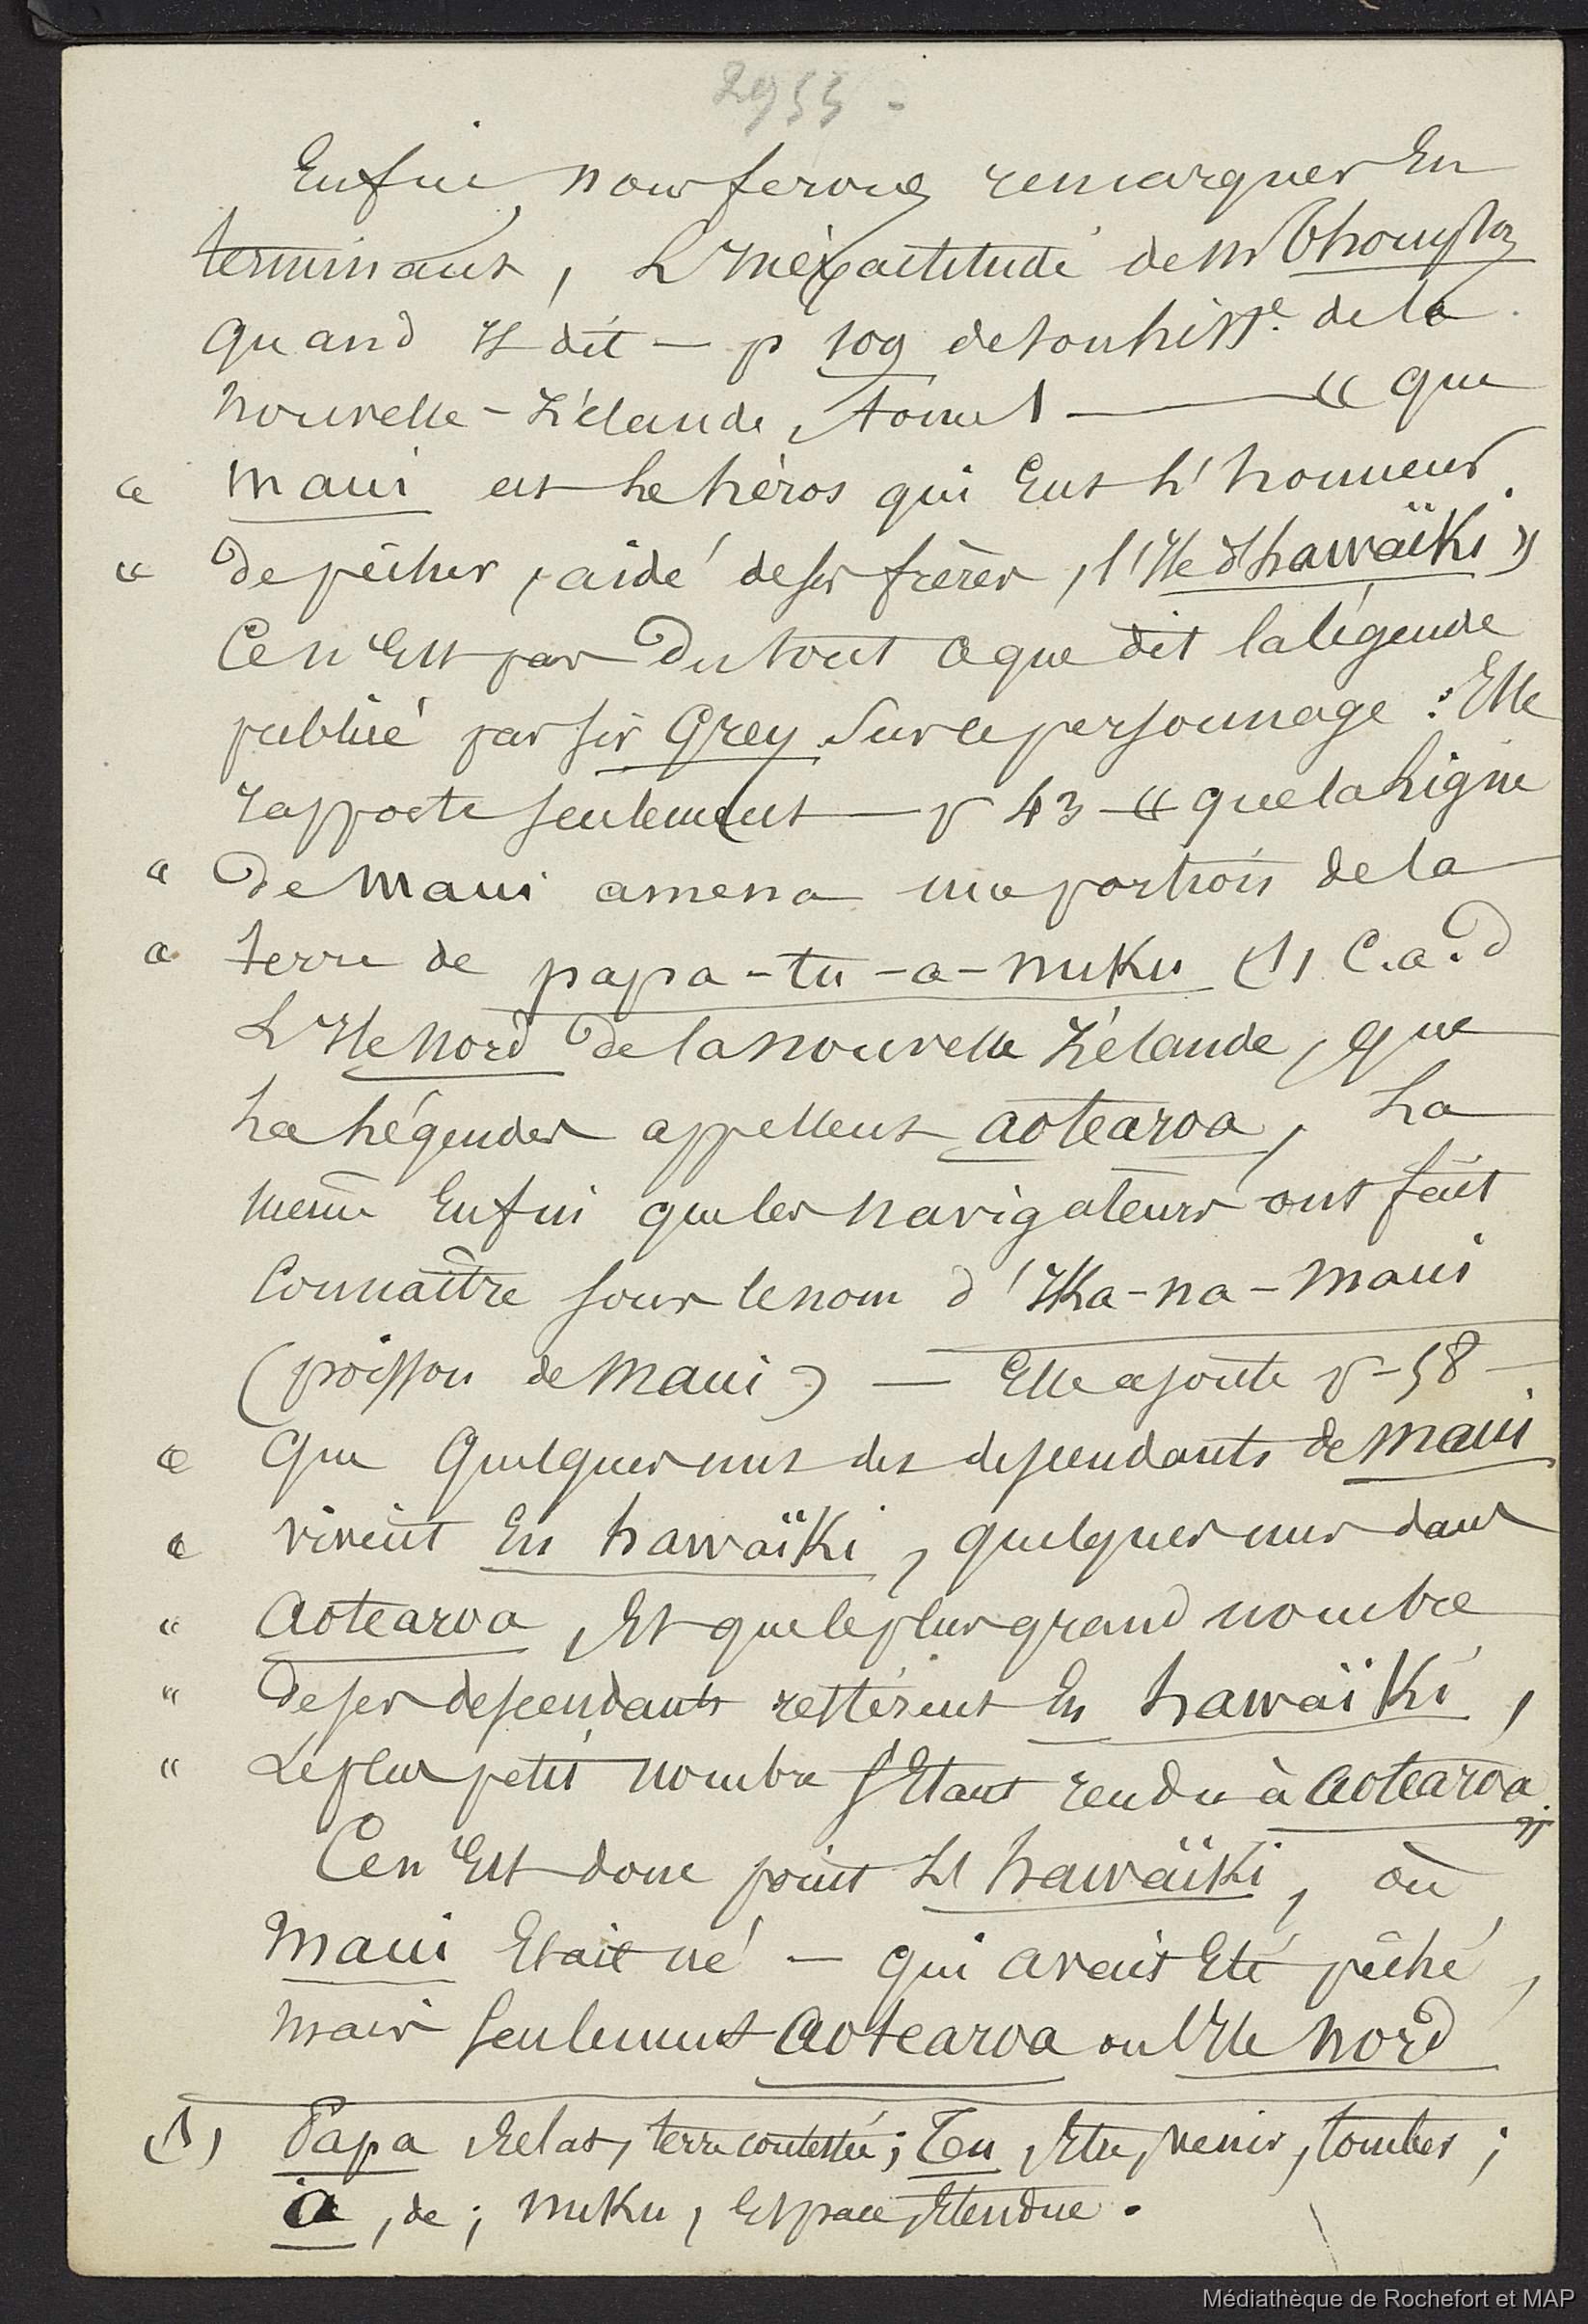 2955 -
Enfin, nous ferons remarquer En
terminant, L'Inéxactitude de Mr Thompson
quand Il dit — p 109 de son histre. de la
Nouvelle-Zélande, tome 1 — « que
« Maui est le héros qui Eut L'honneur
« De pêcher, aidé de ses frères, l'Ile d'hawaïki »
Ce n'Est pas Du tout ce que dit la légende
publié par sir Grey sur ce personnage : Elle
rapporte seulement — p 43 — « que la Ligne
« De Maui amena une portion de la
« terre de papa-tu-a-nuku (1) C.a.d
L'Ile Nord De la Nouvelle Zélande, que
Les Légendes appellent aotearoa, La
même Enfin que les navigateurs ont fait
Connaître sous le nom d'Ika-na-Maui
(poisson de Maui) — Elle ajoute p - 58 —
« Que Quelques uns des descendants de Maui
« vivent En hawaïki, quelques uns dans
« Aotearoa, Et que le plus grand nombre
« De ses descendants restèrent En hawaïki,
« Le plus petit nombre s'Etant rendu à Aotearoa. »
Ce n'Est donc point L'hawaïki, où
Maui Etait né — qui avait Eté pêché,
Mais seulement Aotearoa ou l'Ile Nord
(1) Papa, terre ; Tu, Etre, venir, tomber ;
a, de ; nuku, Espace, Etendue.
Médiathèque de Rochefort et MAP